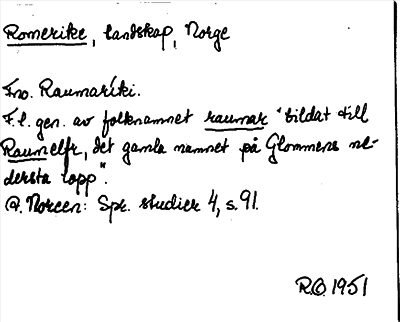 Romerike, landskap, Norge
Fno. Raumaríki.
F.l. gen. av folknamnet raumar "bildat till
Raumelfr, det gamla namnet på Glommens ne-
dersta lopp".
A. Noreen: Spr. studier 4, s. 91.
R.O. 1951